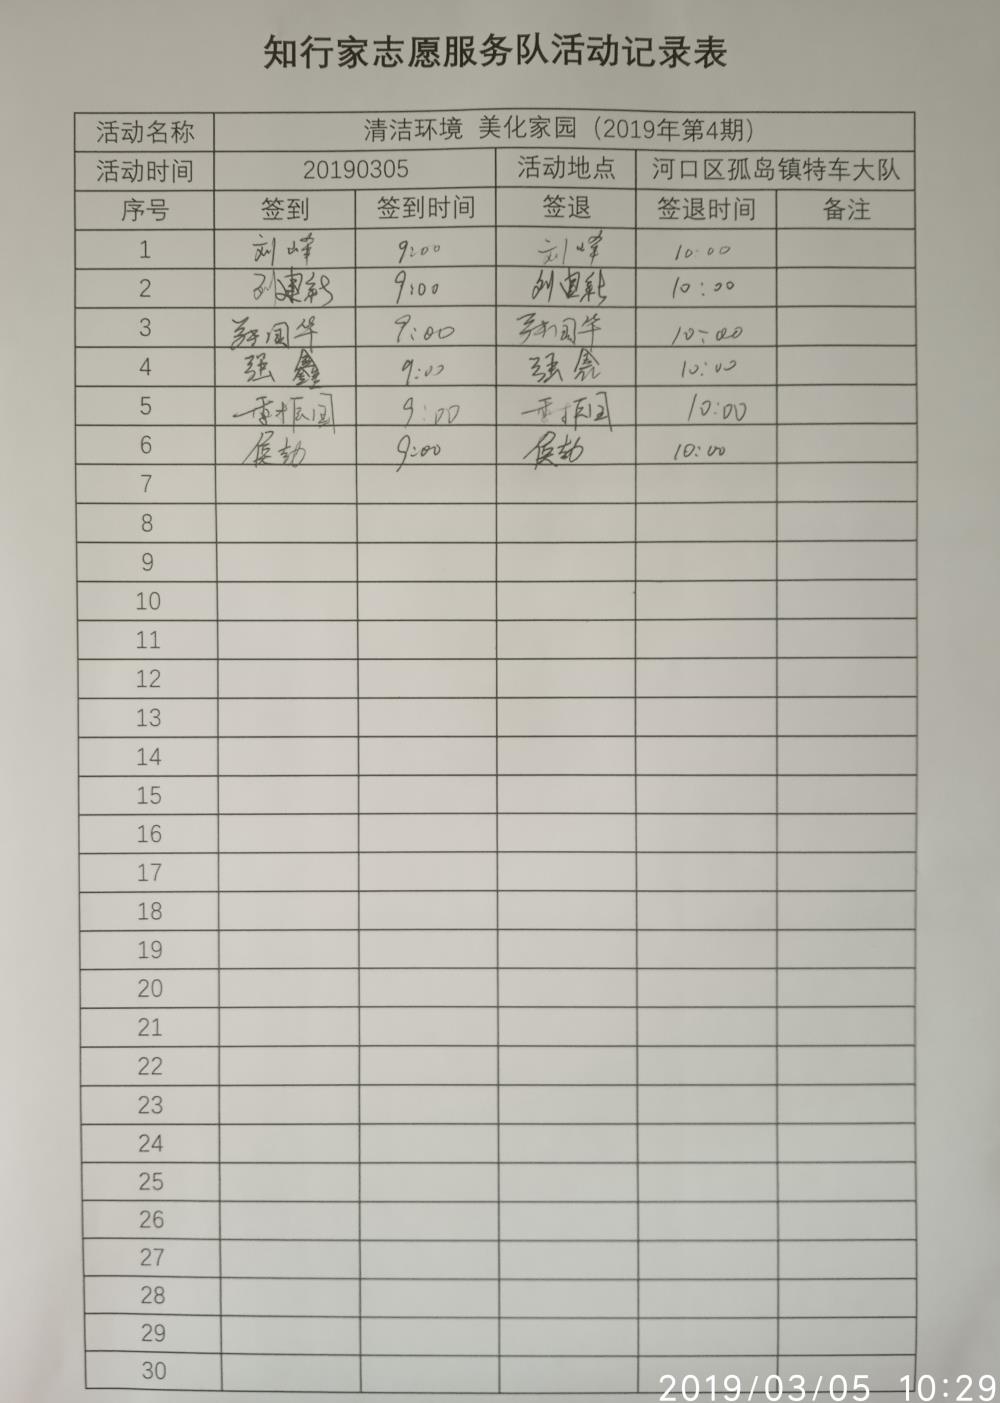 知行家志愿服务队活动记录表
活动名称 清洁环境 美化家园（2019年第4期）
活动时间 20190305 活动地点 河口区孤岛镇特车大队
序号 签到 签到时间 签退 签退时间 备注
1 刘峰 9:00 刘峰 10:00
2 刘建新 9:00 刘建新 10:00
3 国华 9:00 国华 10:00
4 强鑫 9:00 强鑫 10:00
5 振国 9:00 振国 10:00
6 9:00 10:00
7
8
9
10
11
12
13
14
15
16
17
18
19
20
21
22
23
24
25
26
27
28
29
30
2019/03/05 10:29